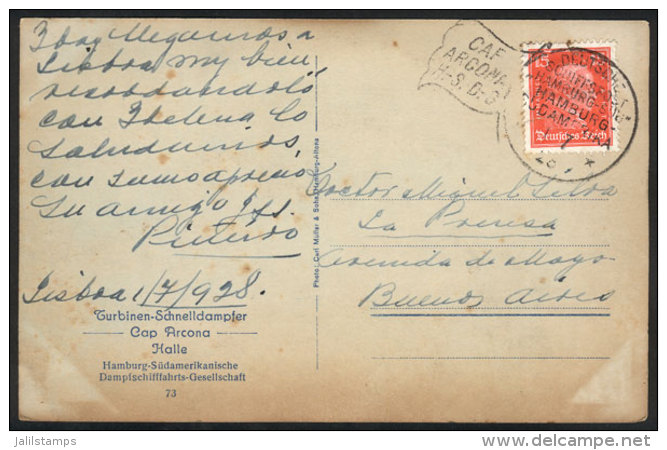 Hoy llegamos a
Lisboa muy bien
recordandolo
con Thelena lo
saludamos
con sumo aprecio
su amigo
Lisboa 1/7/928.
Turbinen-Schnelldampfer
Cap Arcona
Halle
Hamburg-Südamerikanische
Dampfschifffahrts-Gesellschaft
73
Photo: Carl Müller & Sohn, Hamburg-Altona
CAP
ARCONA
H-S.D-G
DEUTSCHE
SCHIFFS-POST
HAMBURG
SÜDAMERIKA
Deutsches Reich
Doctor Miguel
La Prensa
Avenida de Mayo
Buenos Aires
Jalilstamps
delcampe.net